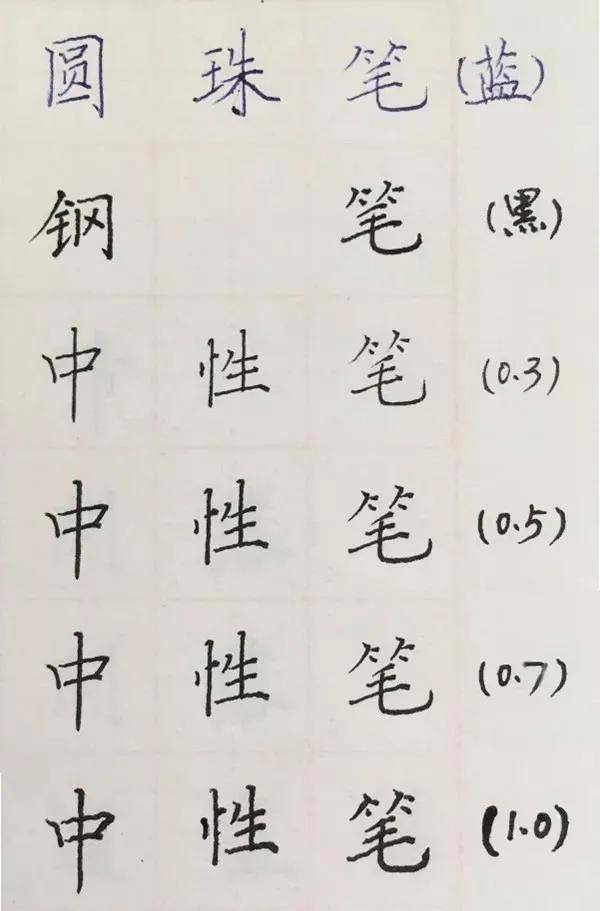 圆珠笔(蓝)
钢笔(黑)
中性笔(0.3)
中性笔(0.5)
中性笔(0.7)
中性笔(1.0)